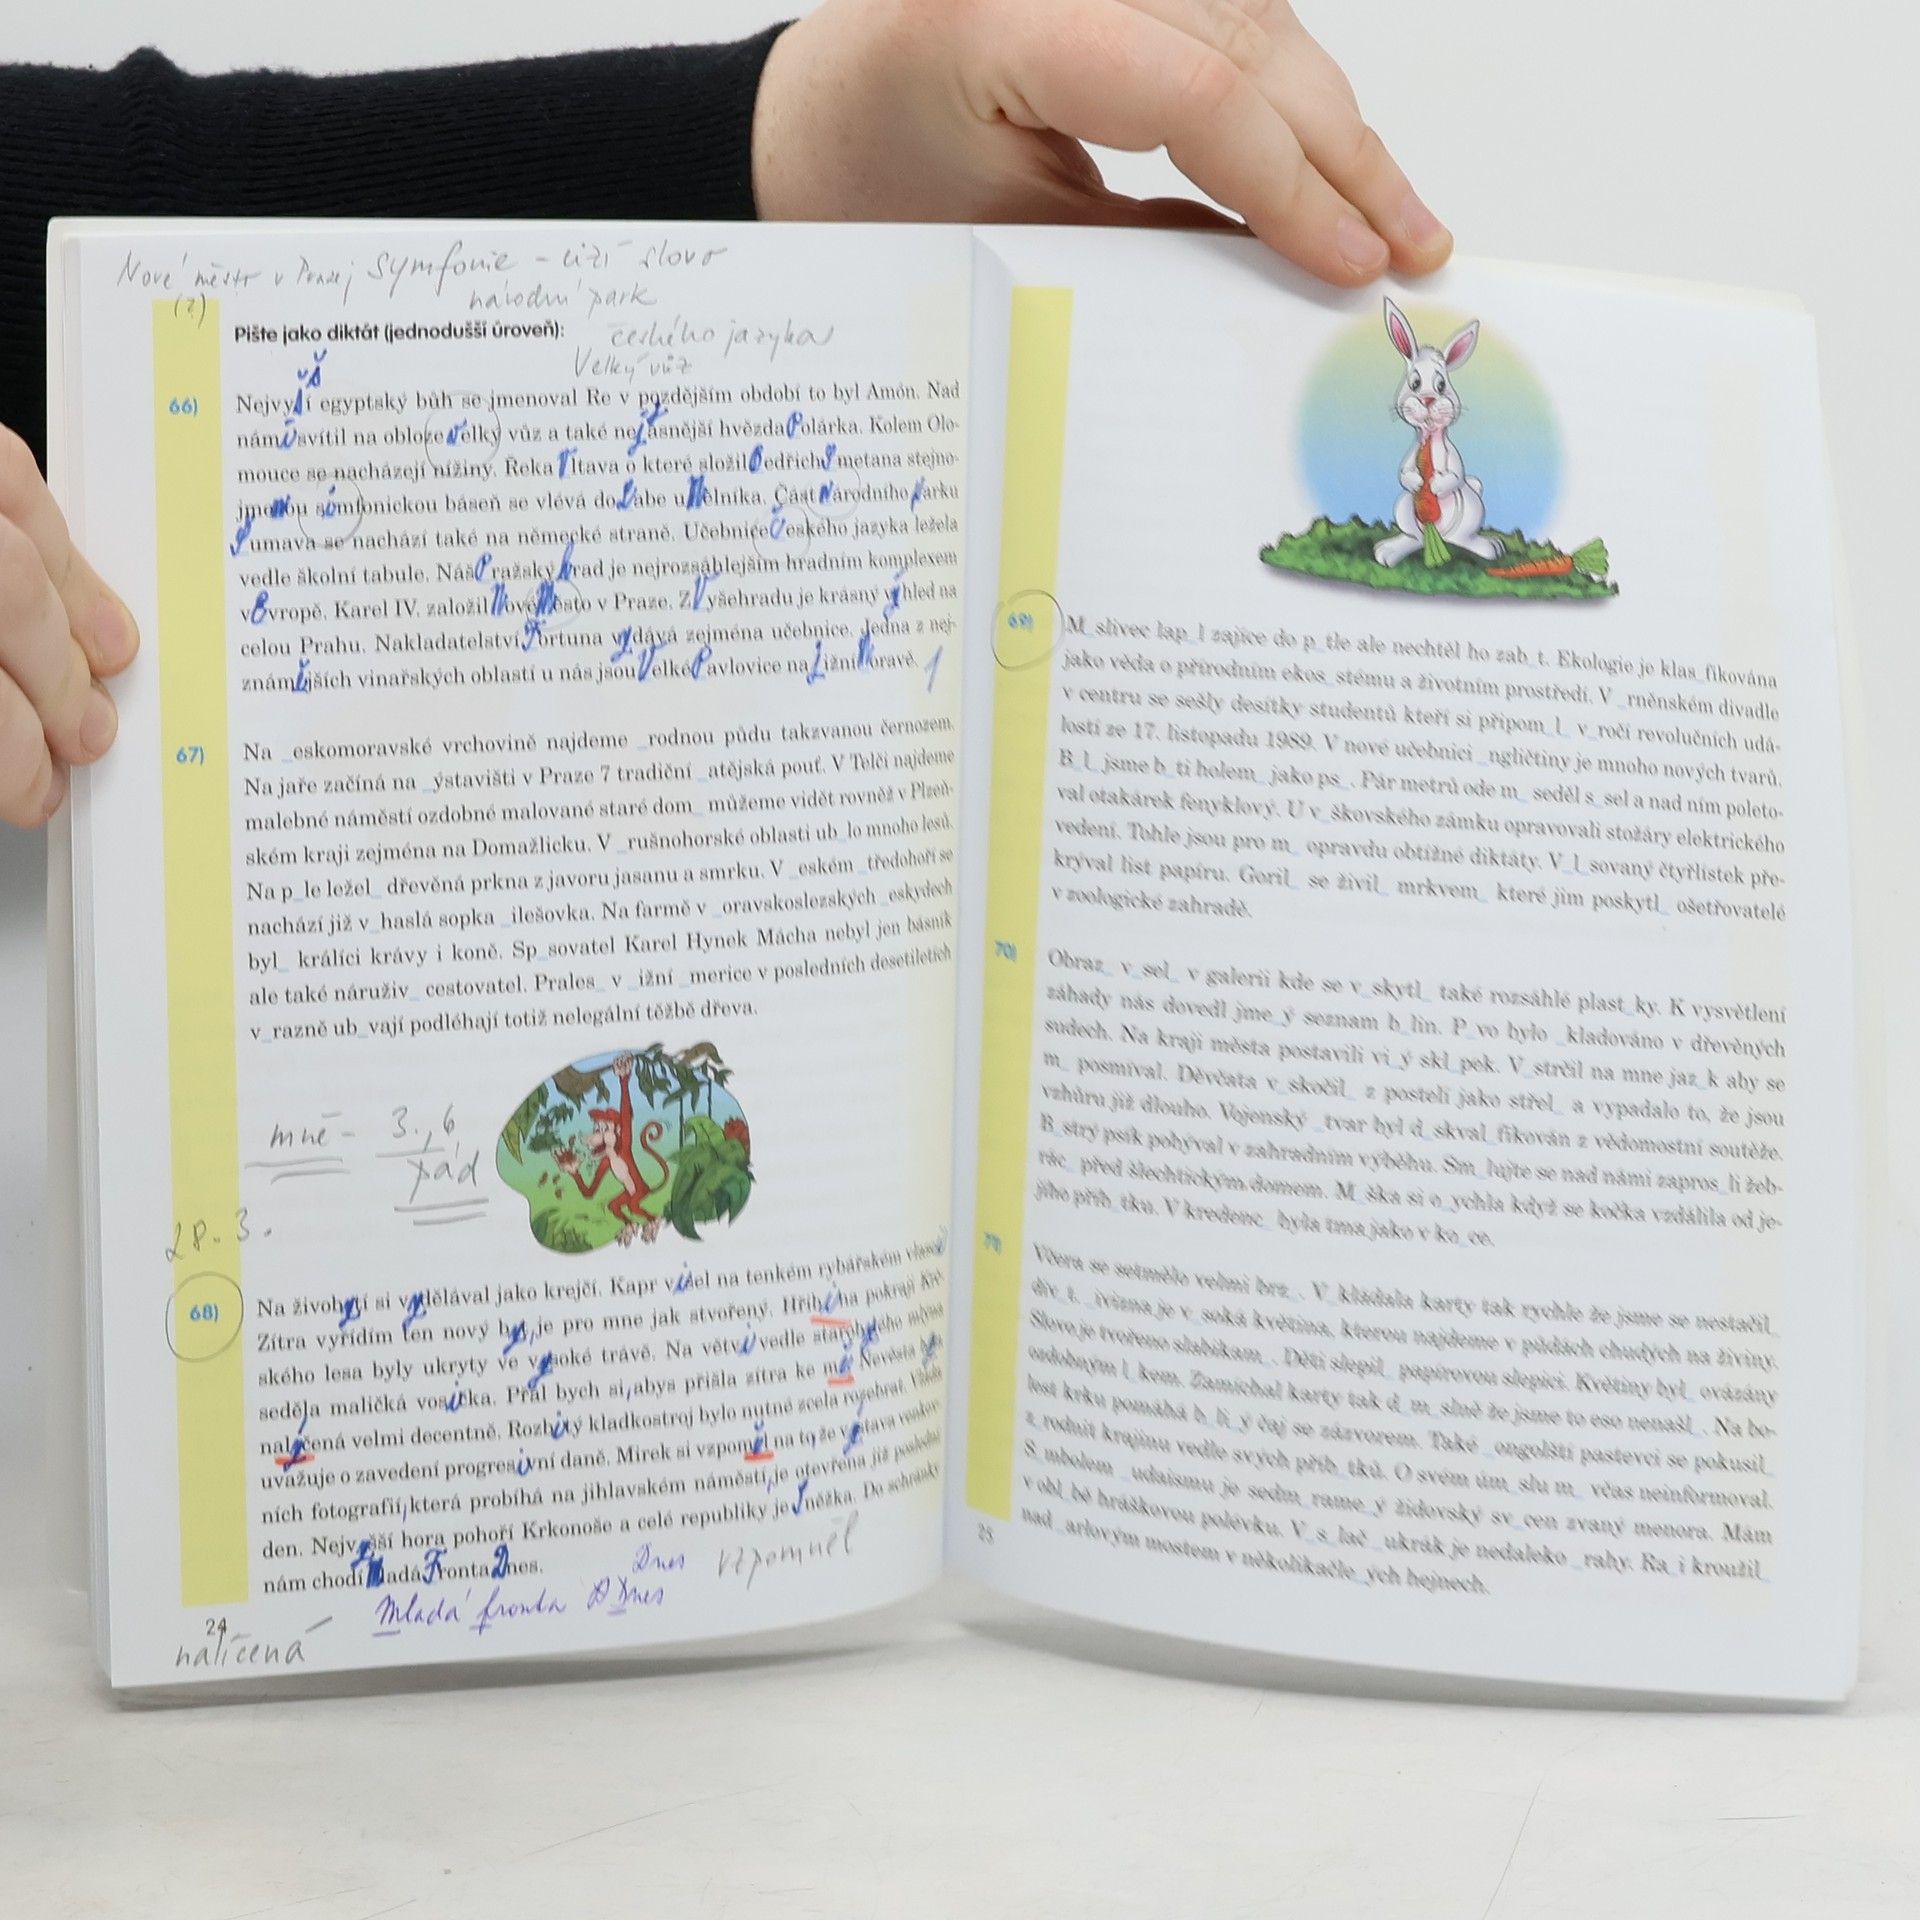 Nové město v Praze, Symfonie - cizí slovo
(?)
národní park
Pište jako diktát (jednodušší úroveň):
českého jazyka
Velký vůz
šš
66)
Nejvyšší egyptský bůh se jmenoval Re v pozdějším období to byl Amón. Nad
námi svítil na obloze Velký vůz a také nejjasnější hvězda Polárka. Kolem Olo-
mouce se nacházejí nížiny. Řeka Vltava o které složil Bedřich Smetana stejno-
jmennou simfonickou báseň se vlévá do Labe u Mělníka. Část Národního parku
Šumava se nachází také na německé straně. Učebnice Českého jazyka ležela
vedle školní tabule. Náš Pražský hrad je nejrozsáhlejším hradním komplexem
v Evropě. Karel IV. založil Nové Město v Praze. Z Vyšehradu je krásný výhled na
celou Prahu. Nakladatelství Fortuna vydává zejména učebnice. Jedna z nej-
známějších vinařských oblastí u nás jsou Velké Pavlovice na Jižní Moravě. 1
67)
Na _eskomoravské vrchovině najdeme _rodnou půdu takzvanou černozem.
Na jaře začíná na _ýstavišti v Praze 7 tradiční _atějská pouť. V Telči najdeme
malebné náměstí ozdobné malované staré dom_ můžeme vidět rovněž v Plzeň-
ském kraji zejména na Domažlicku. V _rušnohorské oblasti ub_lo mnoho lesů.
Na p_le ležel_ dřevěná prkna z javoru jasanu a smrku. V _eském _tředohoří se
nachází již v_haslá sopka _ilešovka. Na farmě v _oravskoslezských _eskydech
byl_ králíci krávy i koně. Sp_sovatel Karel Hynek Mácha nebyl jen básník
ale také náruživ_ cestovatel. Prales_ v _ižní _merice v posledních desetiletích
v_razně ub_vají podléhají totiž nelegální těžbě dřeva.
mně - 3., 6,
pád
28. 3.
68)
Na živobytí si vydělával jako krejčí. Kapr visel na tenkém rybářském vlasci
Zítra vyřídím ten nový byt, je pro mne jak stvořený. Hřibi na pokraji Kré-
ského lesa byly ukryty ve vysoké trávě. Na větvi vedle starobylého mlýna
seděla maličká vosička. Přál bych si, abys přišla zítra ke mě Nevěsta byla
nalyčená velmi decentně. Rozbitý kladkostroj bylo nutné zcela rozebrat. Vláda
uvažuje o zavedení progresivní daně. Mirek si vzpoměl na to, že výstava venkov-
ních fotografií, která probíhá na jihlavském náměstí, je otevřena již poslední
den. Nejvyšší hora pohoří Krkonoše a celé republiky je Sněžka. Do schránky
nám chodí Mladá Fronta Dnes.
Dnes vzpomněl
Mladá fronta Dnes
24
nalíčená
69)
M_slivec lap_l zajíce do p_tle ale nechtěl ho zab_t. Ekologie je klas_fikována
jako věda o přírodním ekos_stému a životním prostředí. V _rněnském divadle
v centru se sešly desítky studentů kteří si připom_l_ v_ročí revolučních udá-
lostí ze 17. listopadu 1989. V nové učebnici _ngličtiny je mnoho nových tvarů.
B_l_ jsme b_ti holem_ jako ps_. Pár metrů ode m_ seděl s_sel a nad ním poleto-
val otakárek fenyklový. U v_škovského zámku opravovali stožáry elektrického
vedení. Tohle jsou pro m_ opravdu obtížné diktáty. V_l_sovaný čtyřlístek pře-
krýval list papíru. Goril_ se živil_ mrkvem_ které jim poskytl_ ošetřovatelé
v zoologické zahradě.
70)
Obraz_ v_sel_ v galerii kde se v_skytl_ také rozsáhlé plast_ky. K vysvětlení
záhady nás dovedl jme_ý seznam b_lin. P_vo bylo _kladováno v dřevěných
sudech. Na kraji města postavili vi_ý skl_pek. V_strčil na mne jaz_k aby se
m_ posmíval. Děvčata v_skočil_ z postelí jako střel_ a vypadalo to, že jsou
vzhůru již dlouho. Vojenský _tvar byl d_skval_fikován z vědomostní soutěže.
B_strý psík pobýval v zahradním výběhu. Sm_lujte se nad námi zapros_li žeb-
rác_ před šlechtickým domem. M_ška si o_ychla když se kočka vzdálila od je-
jího příb_tku. V kredenc_ byla tma jako v ko_ce.
71)
Včera se setmělo velmi brz_. V_kládala karty tak rychle že jsme se nestačil_
div_t. _ivizna je v_soká květina, kterou najdeme v půdách chudých na živiny.
Slovo je tvořeno slabikam_. Děti slepil_ papírovou slepici. Květiny byl_ ovázány
ozdobným l_kem. Zamíchal karty tak d_m_slně že jsme to eso nenašl_. Na bo-
lest krku pomáhá b_li_ý čaj se zázvorem. Také _ongolští pastevci se pokusil_
z_rodnit krajinu vedle svých příb_tků. O svém úm_slu m_ včas neinformoval.
S_mbolem _udaismu je sedm_rame_ý židovský sv_cen zvaný menora. Mám
v obl_bě hráškovou polévku. V_s_lač _ukrák je nedaleko _rahy. Ra_i kroužil_
nad _arlovým mostem v několikačle_ých hejnech.
25